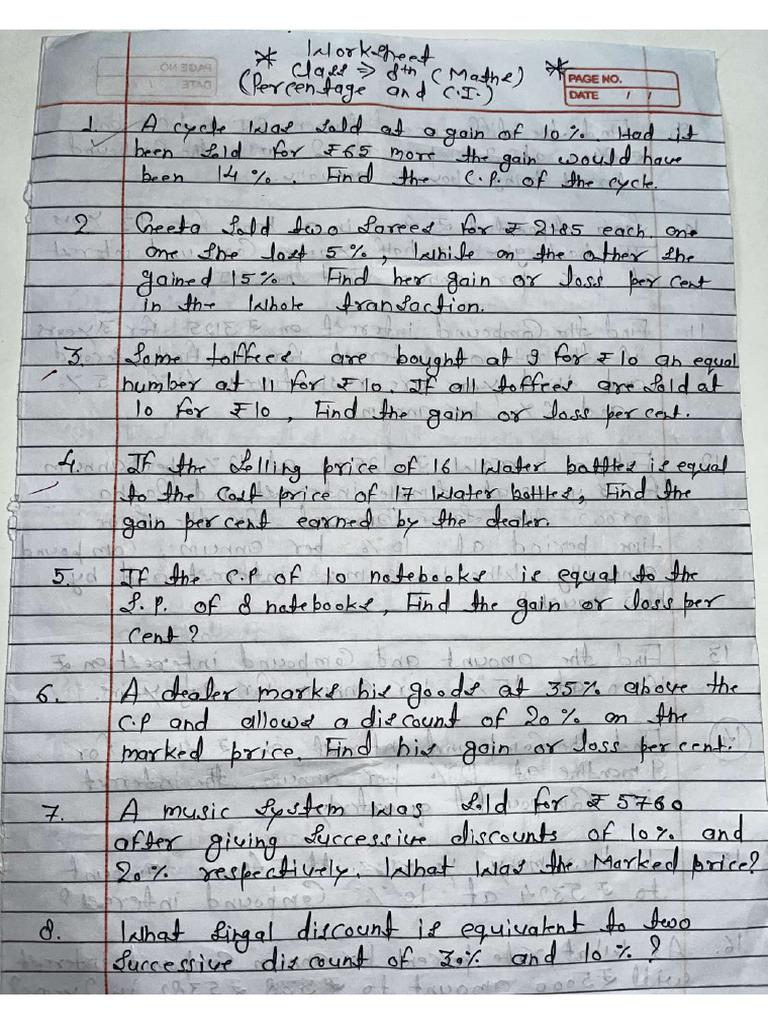 * Worksheet *
Class ⇒ 8th (Maths)
(Percentage and C.I.)
PAGE NO.
DATE / /
1. A cycle was sold at a gain of 10%. Had it
been sold for ₹65 more the gain would have
been 14%. Find the C.P. of the cycle.
2 Geeta sold two sarees for ₹2185 each, one
one she lost 5%, while on the other she
gained 15%. Find her gain or loss per cent
in the whole transaction.
3. Some toffees are bought at 9 for ₹10 an equal
number at 11 for ₹10. If all toffees are sold at
10 for ₹10, Find the gain or loss per cent.
4. If the selling price of 16 water bottles is equal
to the cost price of 17 water bottles, Find the
gain per cent earned by the dealer.
5. If the C.P of 10 notebooks is equal to the
S.P. of 8 notebooks, Find the gain or loss per
cent?
6. A dealer marks his goods at 35% above the
C.P and allows a discount of 20% on the
marked price. Find his gain or loss per cent.
7. A music system was sold for ₹5760
after giving successive discounts of 10% and
20% respectively. What was the Marked price?
8. What singal discount is equivalent to two
successive discount of 30% and 10%?